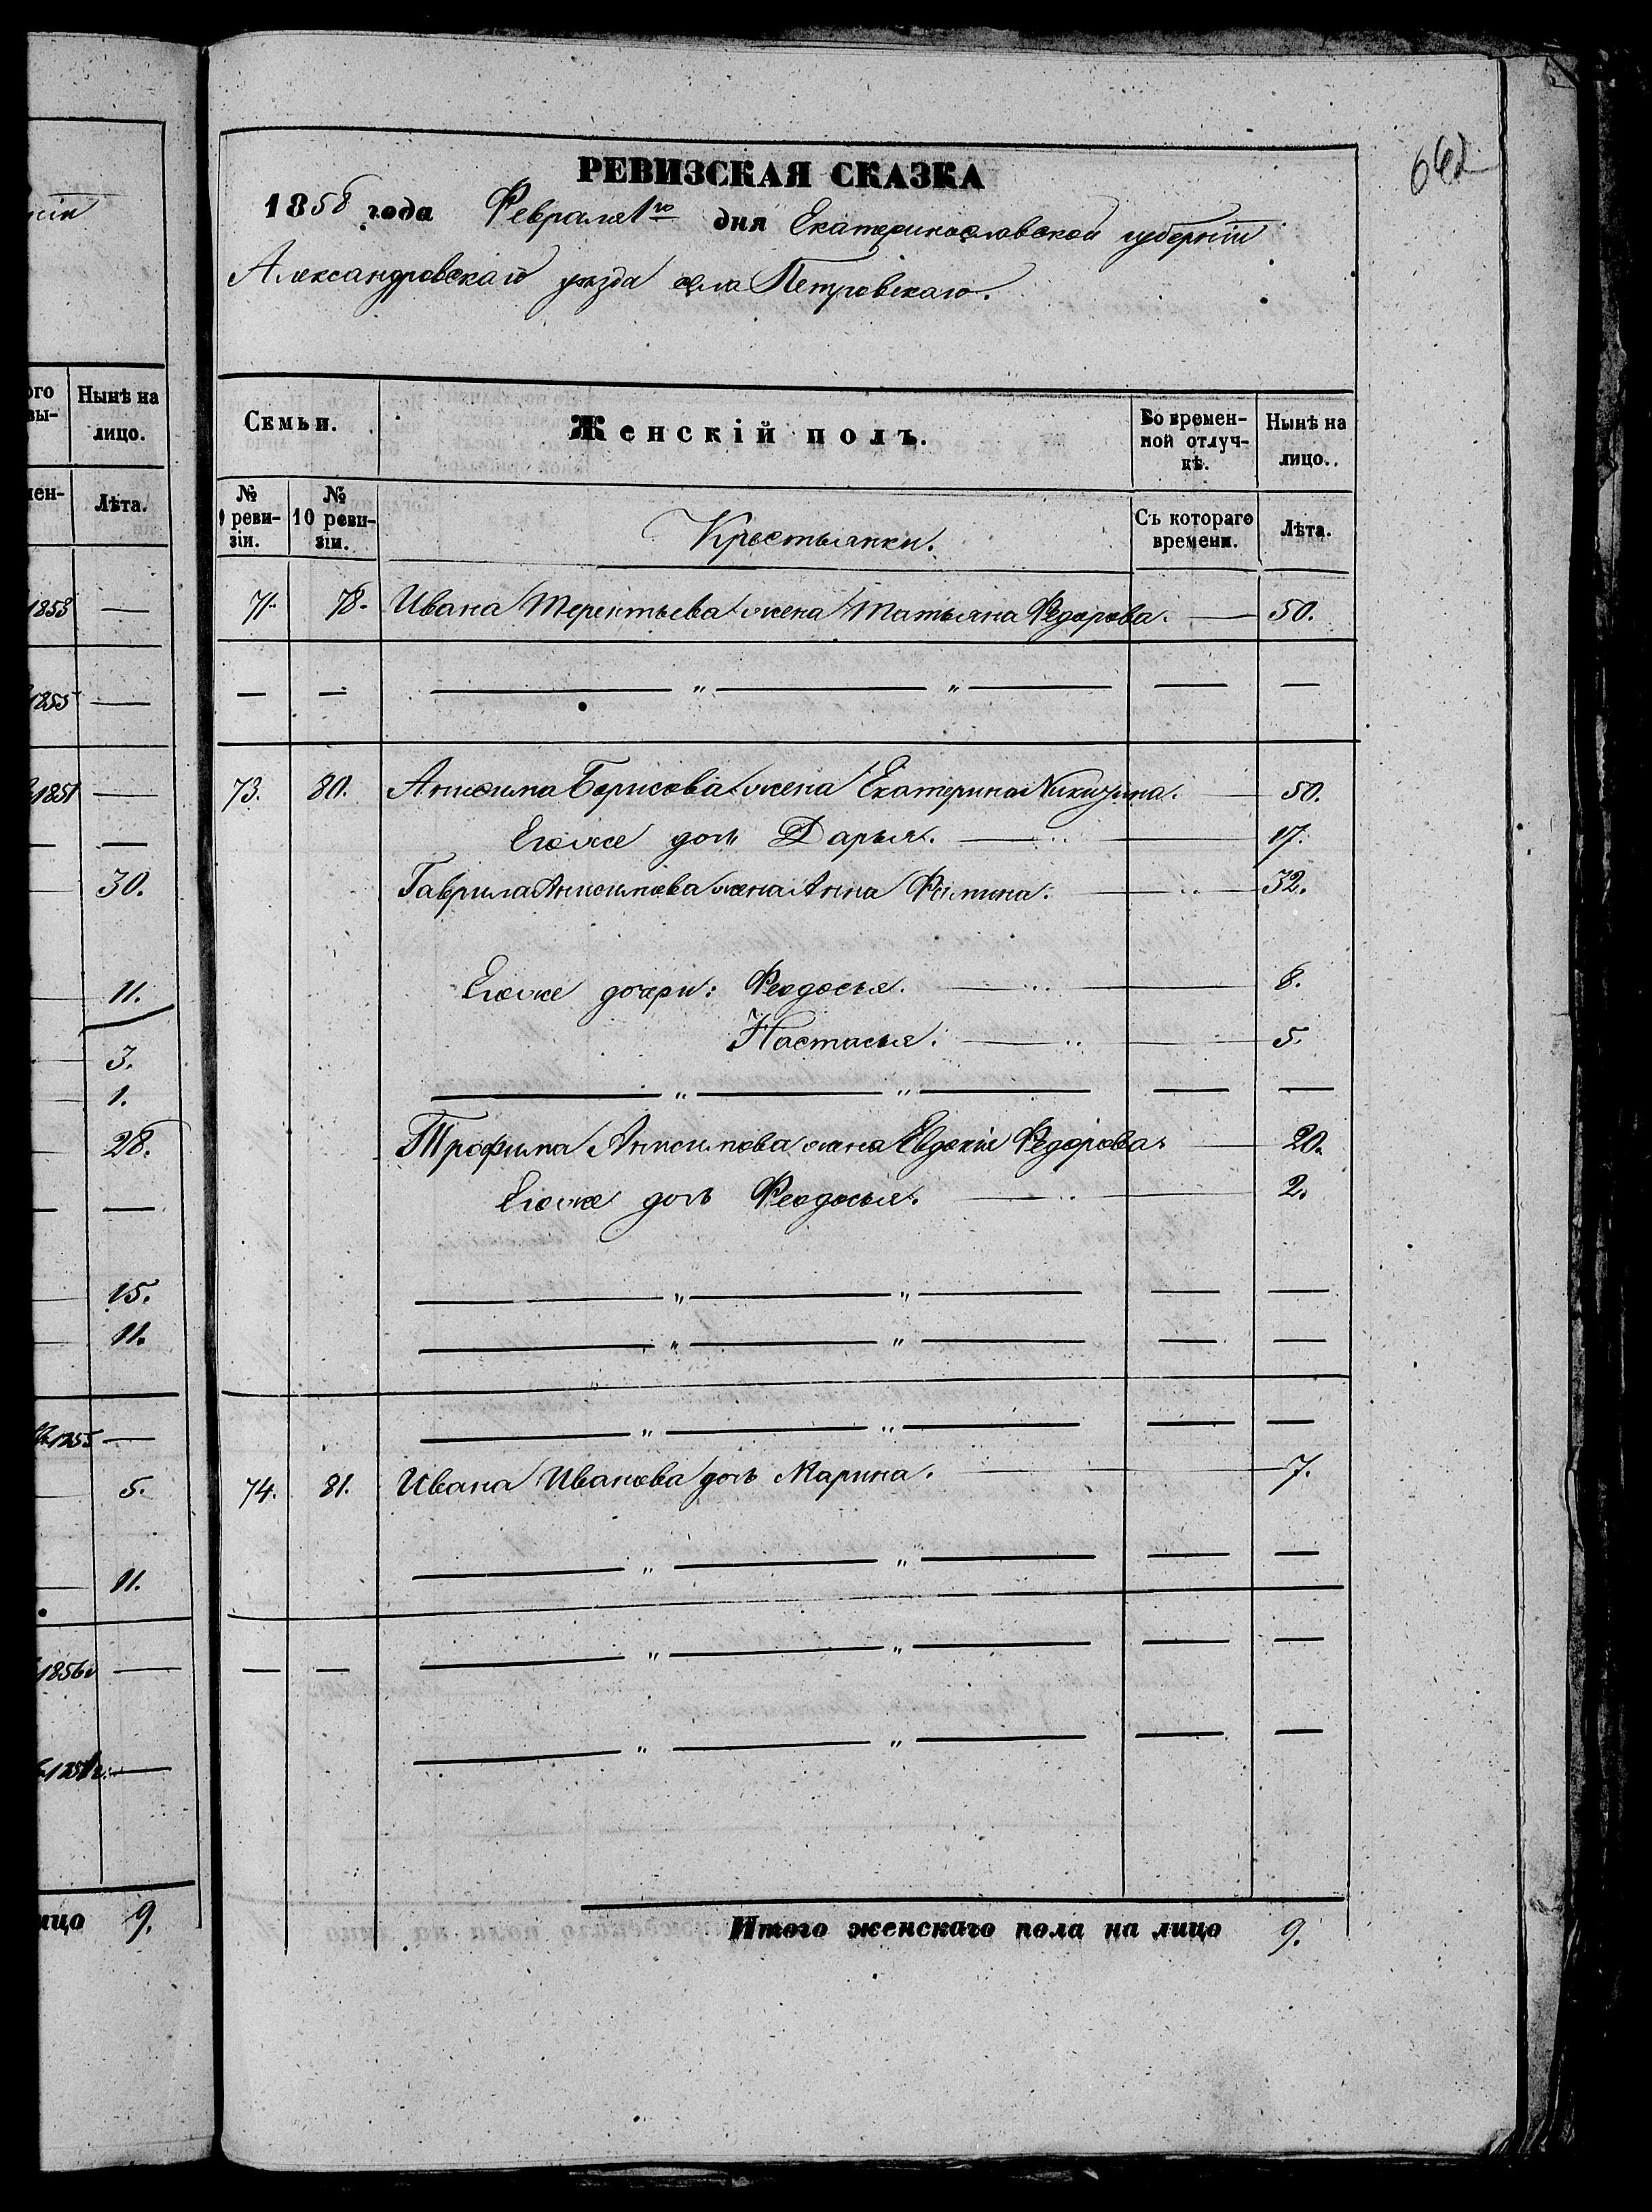 нія
ого Нынѣ на
вы-
лицо.
мен-
Лѣта.
1853 —
1855 —
1851 —
30.
11.
3.
1.
28.
15.
11.
1855 —
5.
11.
1856 —
—
лицо 9.
662
РЕВИЗСКАЯ СКАЗКА
1858 года Февраля 1го дня Екатеринославской губерніи
Александровскаго уѣзда села Петровскаго.
Семьи. Женскій полъ. Во времен-ной отлуч-кѣ. Нынѣ на лицо.
№ 9 реви-зіи. № 10 реви-зіи. Крестьянки. Съ котораго времени. Лѣта.
71. 78. Ивана Терентьева жена Татьяна Федорова. — 50.
— — — " — " — — —
73. 80. Анисима Борисова жена Екатерина Никитина. — 50.
Егоже дочь Дарья. — 17.
Гаврила Анисимова жена Анна Фомина. — 32.
Егоже дочери: Феодосья. — 8.
Настасья. — 5.
— " — " — — —
Трофима Анисимова жена Евдокія Федорова. — 20.
Егоже дочь Феодосья. — 2.
— " — " — — —
— " — " — — —
— " — " — — —
74. 81. Ивана Иванова дочь Марина. — 7.
— " — " — — —
— — — " — " — — —
— " — " — — —
Итого женскаго пола на лицо 9.